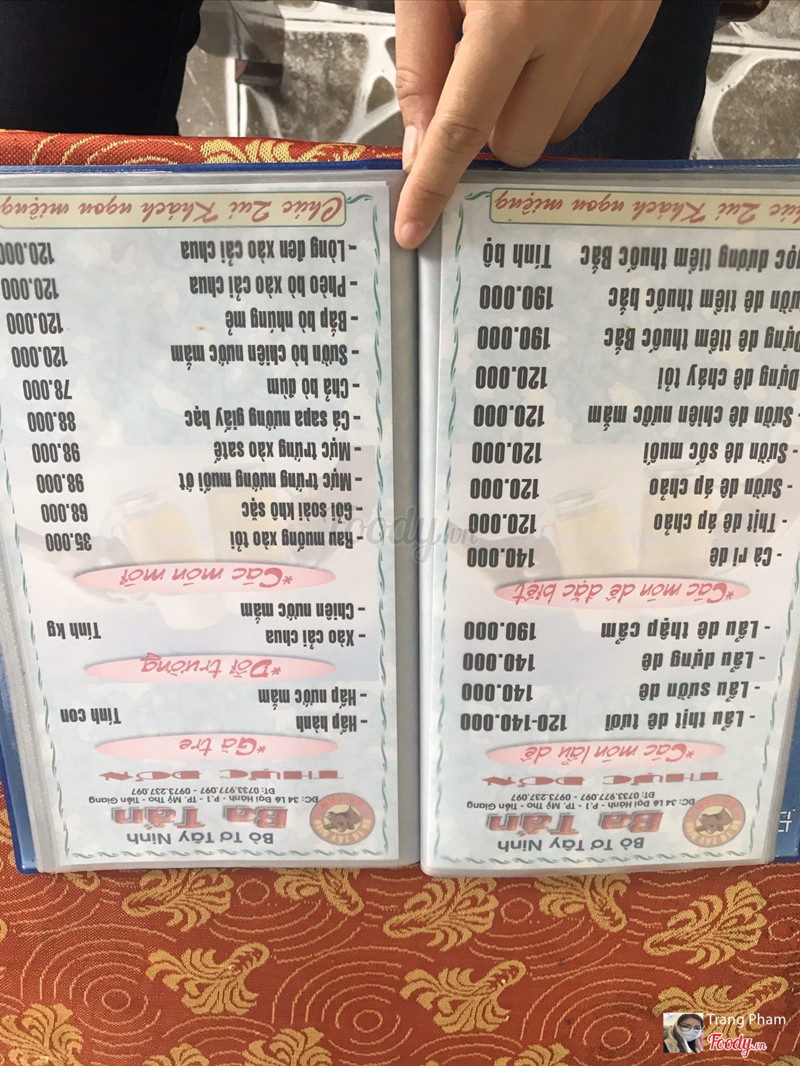 Bò Tơ Tây Ninh
Ba Tấn
ĐC: 34 Lê Đại Hành - P.1 - TP. Mỹ Tho Tiền Giang
ĐT: 0733.977.097 - 0973.237.097
THỰC ĐƠN
*Các món lẩu dê
- Lẩu thịt dê tươi 120-140.000
- Lẩu sườn dê 140.000
- Lẩu dựng dê 140.000
- Lẩu dê thập cẩm 190.000
*Các món dê đặc biệt
- Cà ri dê 140.000
- Thịt dê áp chảo 120.000
- Sườn dê áp chảo 120.000
- Sườn dê sốc muối 120.000
- Sườn dê chiên nước mắm 120.000
Dựng dê cháy tỏi 120.000
Dựng dê tiềm thuốc Bắc 190.000
ườn dê tiềm thuốc bắc 190.000
ọc dương tiềm thuốc Bắc Tính bộ
húc Quí Khách ngon miệng
Bò Tơ Tây Ninh
Ba Tấn
ĐC: 34 Lê Đại Hành - P.1 - TP. Mỹ Tho Tiền Giang
ĐT: 0733.977.097 - 0973.237.097
THỰC ĐƠN
*Gà tre
- Hấp hành Tính con
- Hấp nước mắm
*Dồi trường
- Xào cải chua Tính kg
- Chiên nước mắm
*Các món mới
- Rau muống xào tỏi 35.000
- Gỏi soài khô sặc 68.000
- Mực trứng nướng muối ớt 98.000
- Mực trứng xào satế 98.000
- Cá sapa nướng giấy bạc 88.000
- Chả bò đùm 78.000
- Sườn bò chiên nước mắm 120.000
- Bắp bò nhúng mẻ 120.000
- Phèo bò xào cải chua 120.000
- Lòng đen xào cải chua 120.000
Chúc Quí Khách ngon miệng
Foody.vn
Trang Pham
Foody.vn